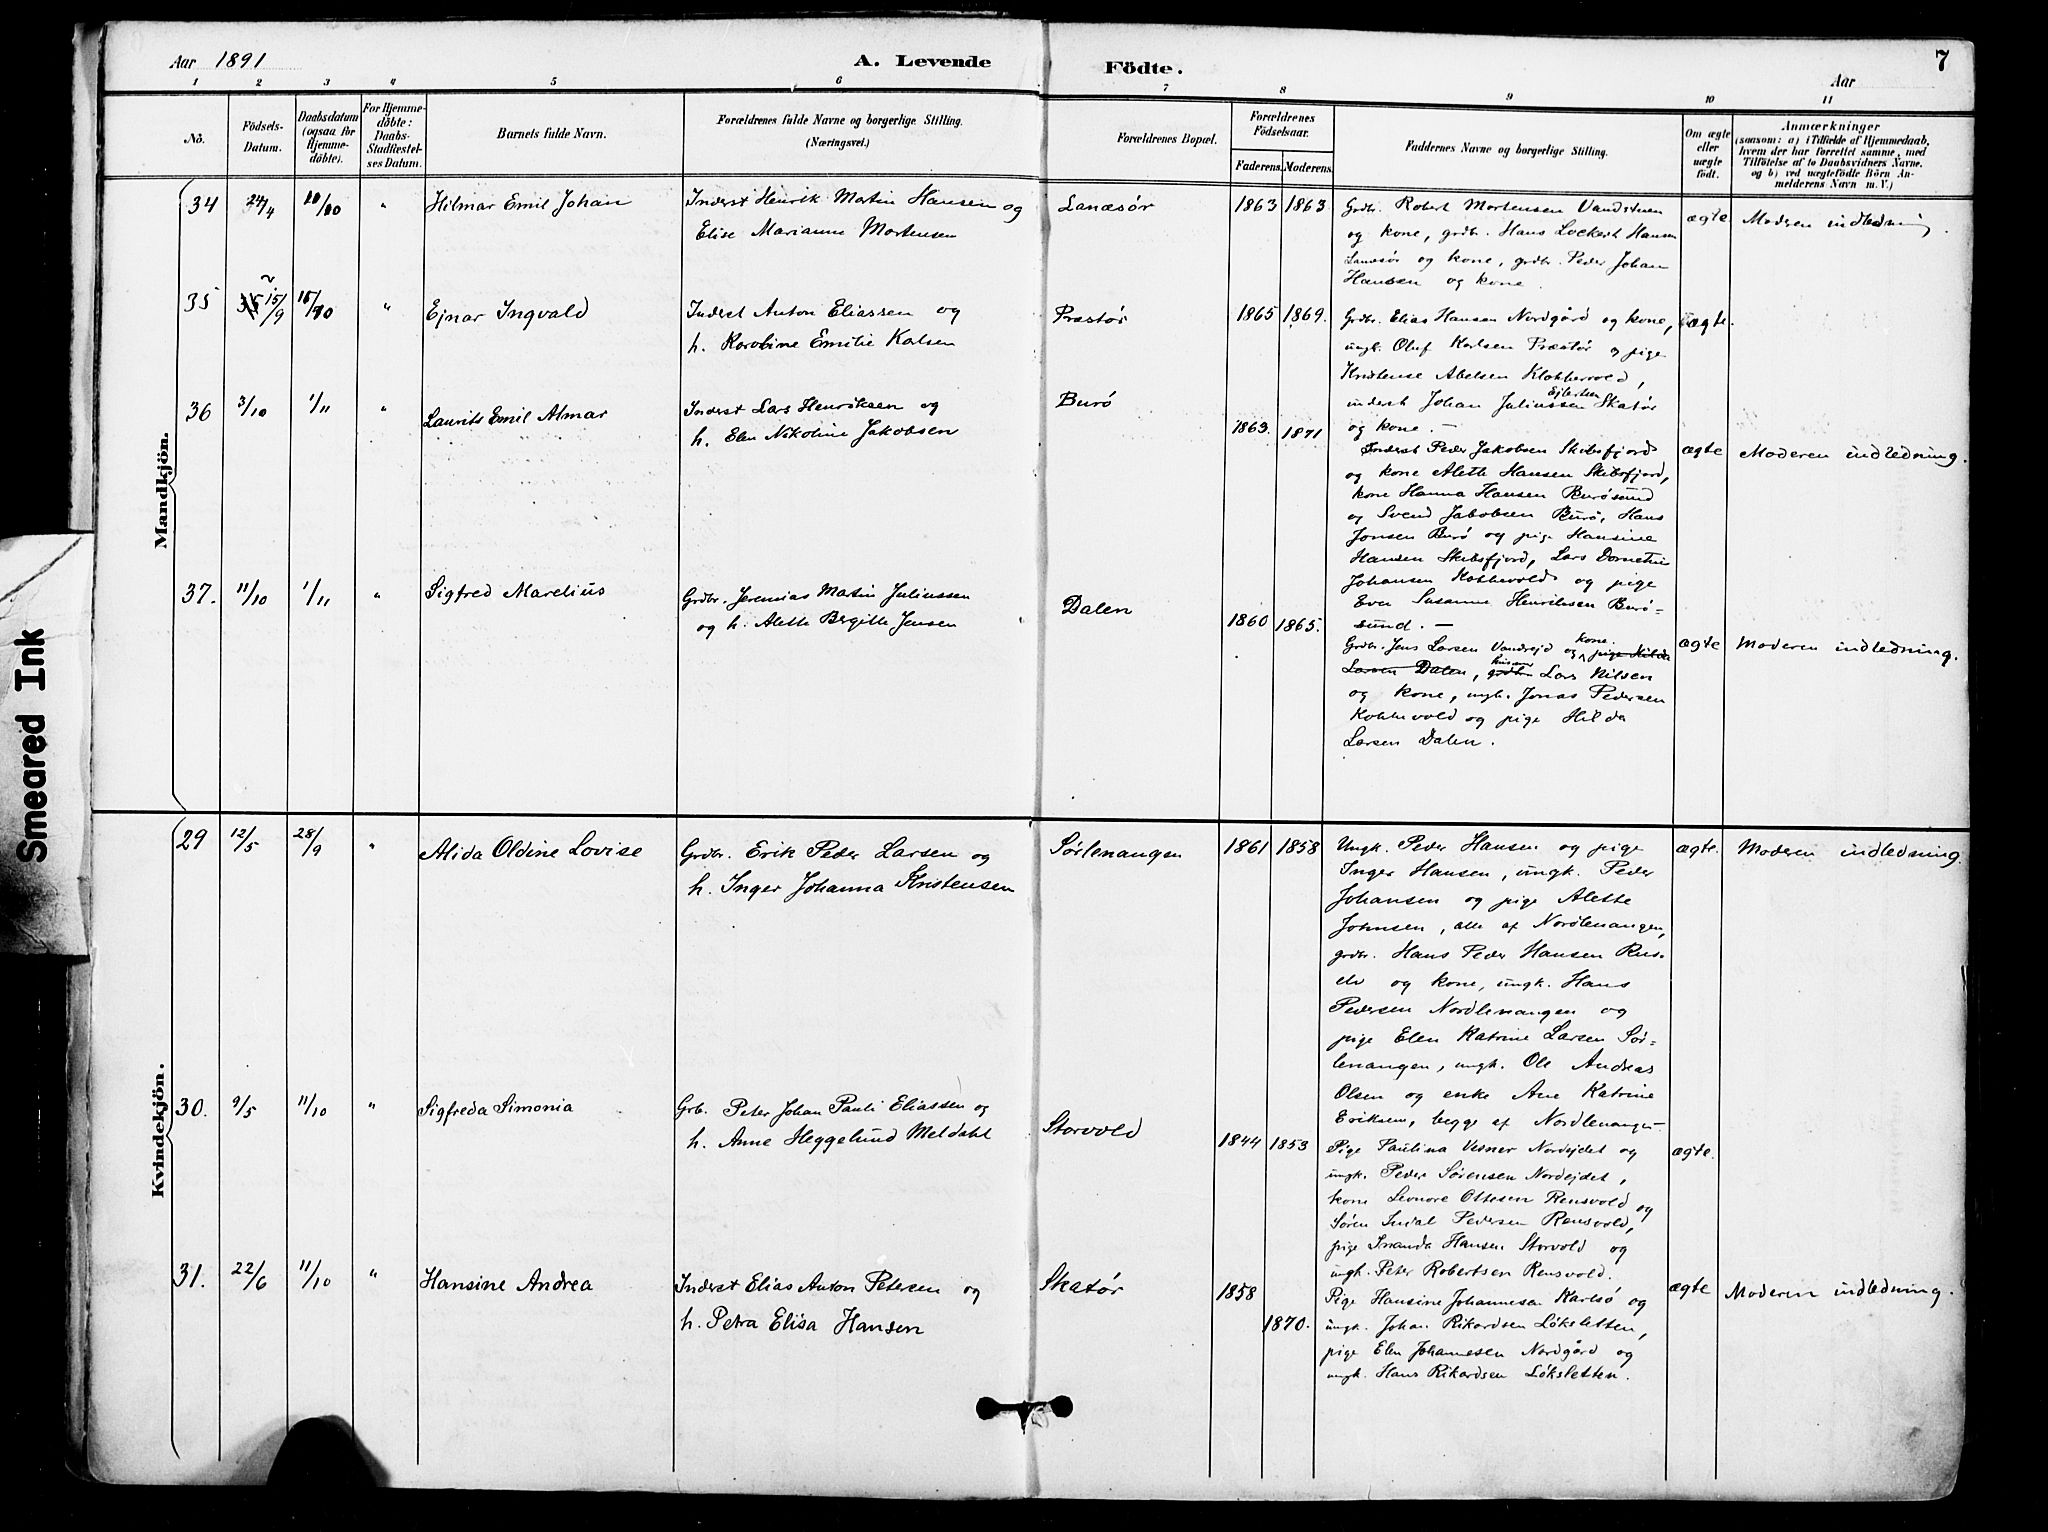 Aar 1891
A. Levende
Födte.
Aar
7
1 2 3 4 5 6 7 8 9 10 11
No.
Födsels-
Datum.
Daabsdatum
(ogsaa for
Hjemme-
döbte).
For Hjemme-
döbte:
Daabs-
Stadfæstel-
ses Datum.
Barnets fulde Navn.
Forældrenes fulde Navne og borgerlige Stilling.
(Næringsvei.)
Forældrenes Bopæl.
Forældrenes
Födselsaar.
Faderens. Moderens.
Faddernes Navne og borgerlige Stilling.
Om ægte
eller
uægte
födt.
Anmærkninger
(saasom: a) i Tilfælde af Hjemmedaab,
hvem der har forrettet samme, med
Tilföielse af to Daabsvidners Navne.
og b) ved uægtefödte Börn An-
melderens Navn m. V.)
Mandkjön.
34 24/4 " Hilmar Emil Johan
Inderst Henrik Martin Hansen og
Elise Marianne Mortensen
Lanæsør
1863 1863
Grdbr. Robert Mortensen Vandstuen
og kone, grdbr. Hans Lockert Hansen
Lanæsør og kone, grdbr. Peder Johan
Hansen og kone.
ægte
Moderen indledning.
35 15/9 " Ejnar Ingvald
Inderst Anton Eliassen og
h. Karoline Emilie Karlsen
Præstør
1865 1869.
Grdbr. Elias Hansen Nordgård og kone,
ungk. Oluf Karlsen Præstør og pige
Kristense Abelsen Klokkervold,
Ejlertsen
inderst Johan Juliussen Skatør
og kone. —
ægte.
36 3/10 1/11 " Laurits Emil Almar
Inderst Lars Henriksen og
h. Elen Nikoline Jakobsen
Burø
1863. 1871
Inderst Peder Jakobsen Skibsfjord
og kone Alette Hansen Skibsfjord,
kone Hanna Hansen Burøsund
og Svend Jakobsen Burø, Hans
Jonsen Burø og pige Hansine
Hansen Skibsfjord, Lars
Johansen Kokkevold og pige
Susanne Henriksen Burø-
sund. —
ægte
Moderen indledning.
37. 11/10 1/11 " Sigfred Marelius
Grdbr. Jeremias Martin Juliussen
og h. Alette Bergitte Jensen
Dalen
1860 1865.
kone.
Grdbr. Jens Larsen og pige Hilda
husm.
Larsen Dalen, grdbr Lars Nilsen
og kone, ungk. Jonas Pedersen
Kokkevold og pige Hilda
Larsen Dalen.
ægte
Moderen indledning.
Kvindekjön.
29 12/5 28/9 " Alida Oldine Lovise
Grdbr. Erik Peder Larsen og
h. Inger Johanna Kristensen
Sørlenangen
1861 1858
Ungk. Peder Hansen og pige
Inger Hansen, ungk. Peder
Johansen og pige Alette
Johnsen, alle af Nordlenangen,
grdbr. Hans Peder Hansen Rus-
elv og kone, ungk. Hans
Pedersen Nordlenangen og
pige Elen Katrine Larsen Sør-
lenangen, ungk. Ole Andreas
Olsen og enke Ane Katrine
Eriksen, begge af Nordlenangen.
ægte.
Moderen indledning.
30. 9/5 11/10 " Sigfreda Simonia
Grb. Peter Johan Pauli Eliassen og
h. Anne Heggelund Meldahl
Storvold
1844 1853
Pige Paulina Vesner Nordejdet og
ungk. Peder Sørensen Nordejdet,
kone Leonore Ottesen Rensvold og
Søren Pedersen Rensvold,
pige Hansen Storvold og
ungk. Peter Robertsen Rensvold.
ægte.
31. 22/6 11/10 " Hansine Andrea
Inderst Elias Anton Petersen og
h. Petra Elisa Hansen
Skatør
1858 1870.
Pige Hansine Johannesen Karlsø og
ungk. Johan Rikardsen Løksletten,
pige Elen Johannesen Nordgård og
ungk. Hans Rikardsen Løksletten.
ægte
Moderen indledning.
Smeared Ink